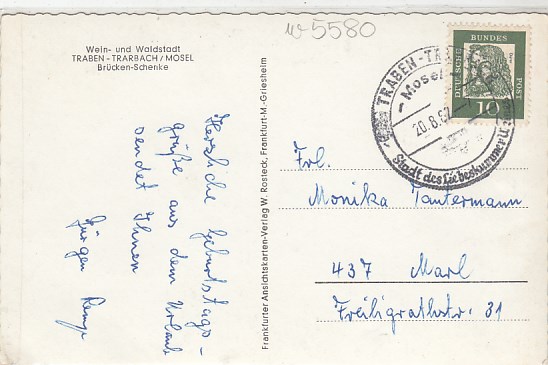 w-5580
Wein- und Waldstadt
TRABEN-TRARBACH/MOSEL
Brücken-Schenke
Herzliche Geburtstags-
grüße aus dem Urlaub
sendet Ihnen
Jürgen
Frankfurter Ansichtskarten-Verlag W. Rosteck, Frankfurt-M.-Griesheim
DEUTSCHE
BUNDES
POST
10
TRABEN-TRA
Mosel
20.8.6
Stadt des Liebeskummer
Frl.
Monika Tantermann
437 Marl
Freiligrathstr. 31